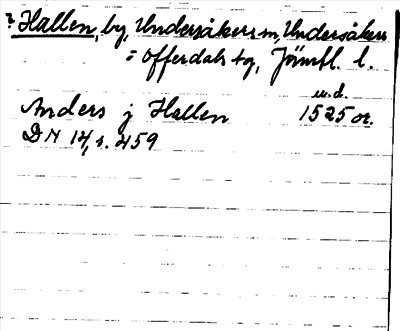 ? Hallen, by, Undersåkers sn, Undersåkers
= Offerdals tg, Jämtl. l.
u.d.
Anders j Hallen 1525 or.
DN 14, s. 459